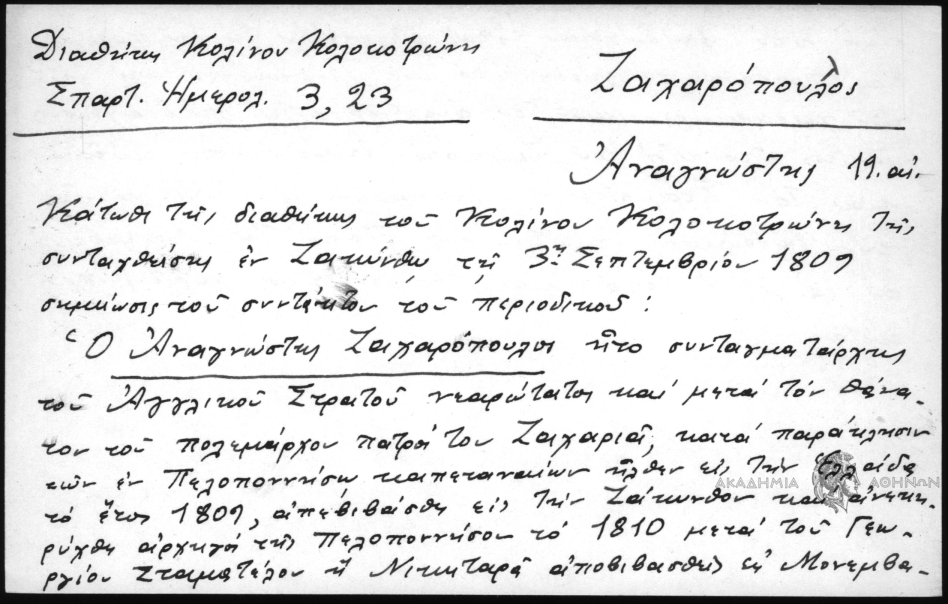 Διαθήκης Κολίνου Κολοκοτρώνη
Σπαρτ. Ημερολ. 3, 23
Ζαχαρόπουλος
Ἀναγνώστης 19. αἰ.
Κάτωθι τῆς διαθήκης τοῦ Κολίνου Κολοκοτρώνη τῆς
συνταχθείσης ἐν Ζακύνθῳ τῇ 3ῃ Σεπτεμβρίου 1809
σημείωσις τοῦ συντάκτου τοῦ περιοδικοῦ:
"Ὁ Ἀναγνώστης Ζαχαρόπουλος ἦτο συνταγματάρχης
τοῦ Ἀγγλικοῦ Στρατοῦ νεαρώτατος καί μετά τόν θάνα-
τον τοῦ πολεμάρχου πατρός του Ζαχαριᾶ, κατά παράκλησιν
τῶν ἐν Πελοποννήσῳ καπεταναίων ἦλθεν εἰς τήν Ἑλλάδα
τό ἔτος 1809, ἀπεβιβάσθη εἰς τήν Ζάκυνθον καί ἀνεκη-
ρύχθη ἀρχηγός τῆς Πελοποννήσου τό 1810 μετά τοῦ Γεω-
ργίου Σταματέλου ἤ Νικηταρᾶ ἀποβιβασθείς εἰς Μονεμβα-
ΑΚΑΔΗΜΙΑ ΑΘΗΝΩΝ